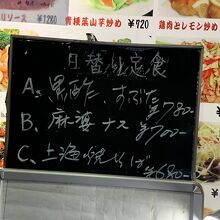 青椒菜山芋炒め ¥1720
鶏肉とレモン炒め
リソース ¥980
日替り定食
A、黒酢、すぶた ¥780-
B、麻婆ナス ¥700-
C、上海焼そば ¥680-